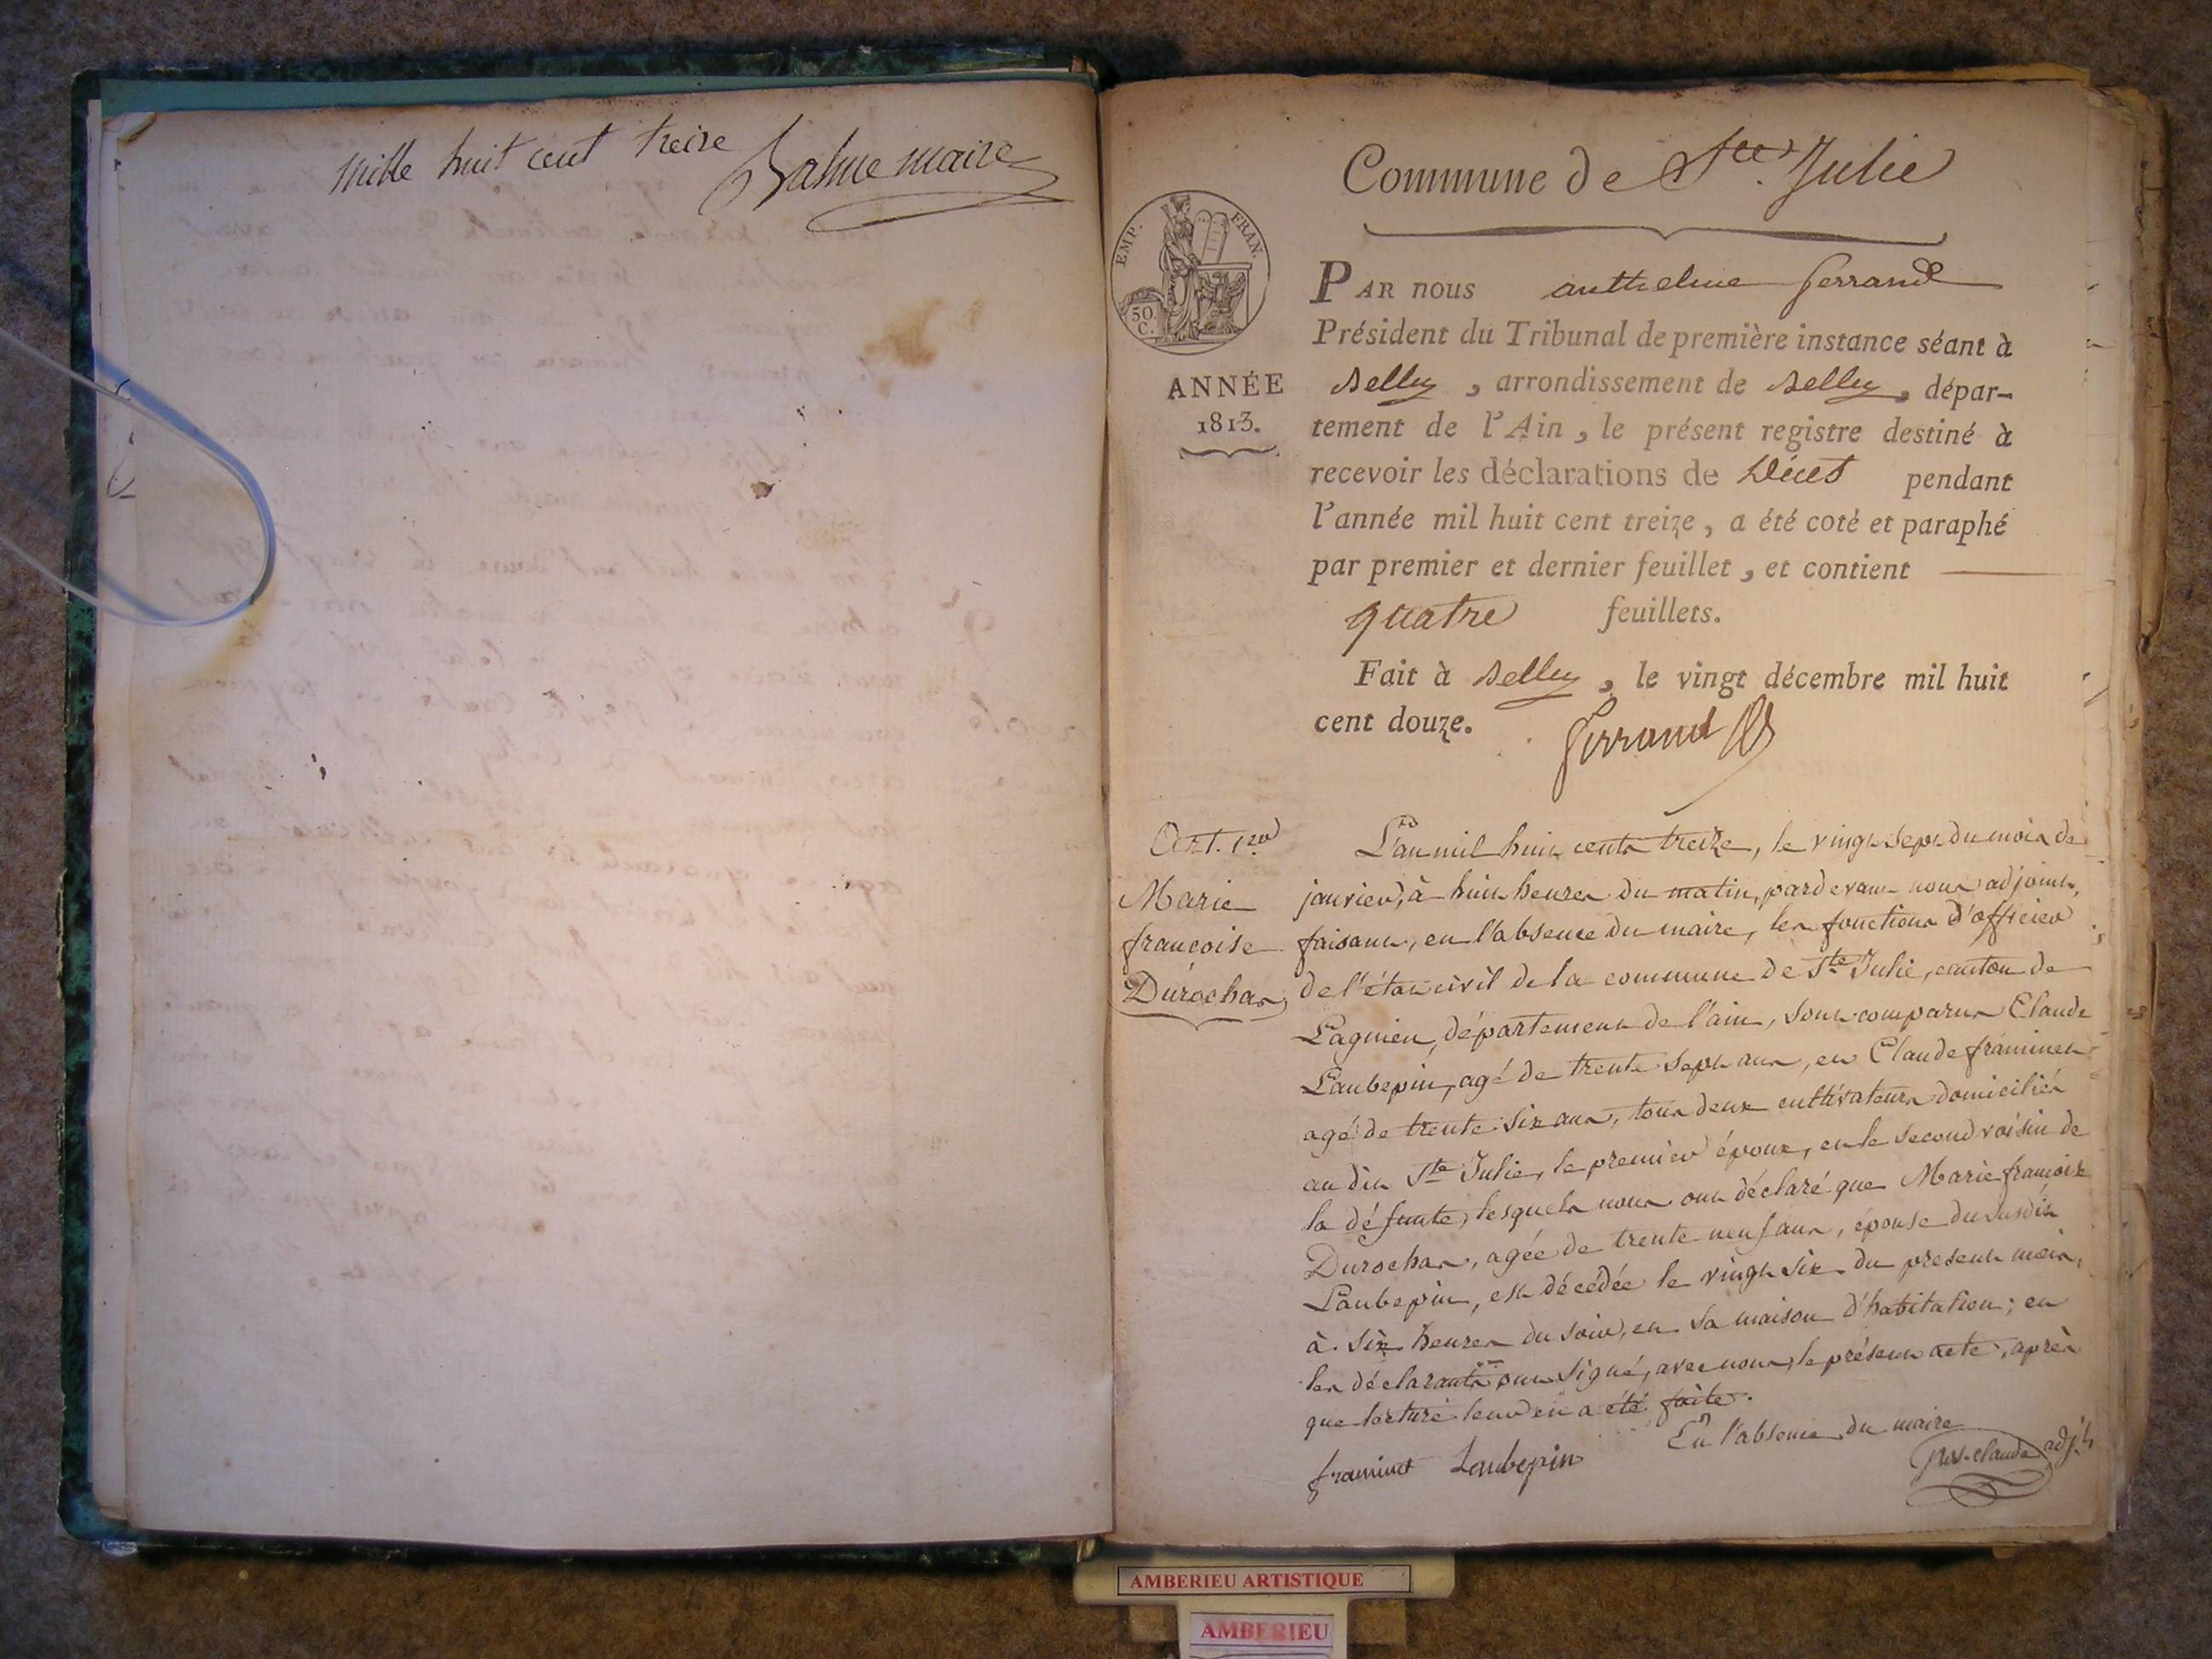 Mille huit cent treize Balme maire
Commune de Ste. Julie
EMP. FRAN.
50. C.
ANNÉE
1813.
PAR nous anthelme ferrand
Président du Tribunal de première instance séant à
Belley, arrondissement de Belley, dépar-
tement de l'Ain, le présent registre destiné à
recevoir les déclarations de Décès pendant
l'année mil huit cent treize, a été coté et paraphé
par premier et dernier feuillet, et contient
quatre feuillets.
Fait à Belley, le vingt décembre mil huit
cent douze.
ferrand
Art. 1er
Marie
francoise
Durochas
L'an mil huit cents treize, le vingt sept du mois de
janvier, à huit heures du matin, pardevant nous adjoint,
faisant, en l'absence du maire, les fonctions d'officier
de l'état civil de la commune de Ste Julie, canton de
Lagnieu, département de l'ain, sont comparus Claude
Laubepin, agé de trente sept ans, et Claude framinet
agé de trente six ans, tous deux cultivateurs domiciliés
au dit Ste Julie, le premier époux, et le second voisin de
la défunte, lesquels nous ont déclaré que Marie francoise
Durochas, agée de trente neuf ans, épouse du susdit
Laubepin, est décédée le vingt six du present mois,
à six heures du soir, en sa maison d'habitation; et
les déclarants ont signé, avec nous, le présent acte, après
que lecture leur en a été faite.
framinet Laubepin
En l'absence du maire
claude adj.t
AMBERIEU ARTISTIQUE
AMBERIEU